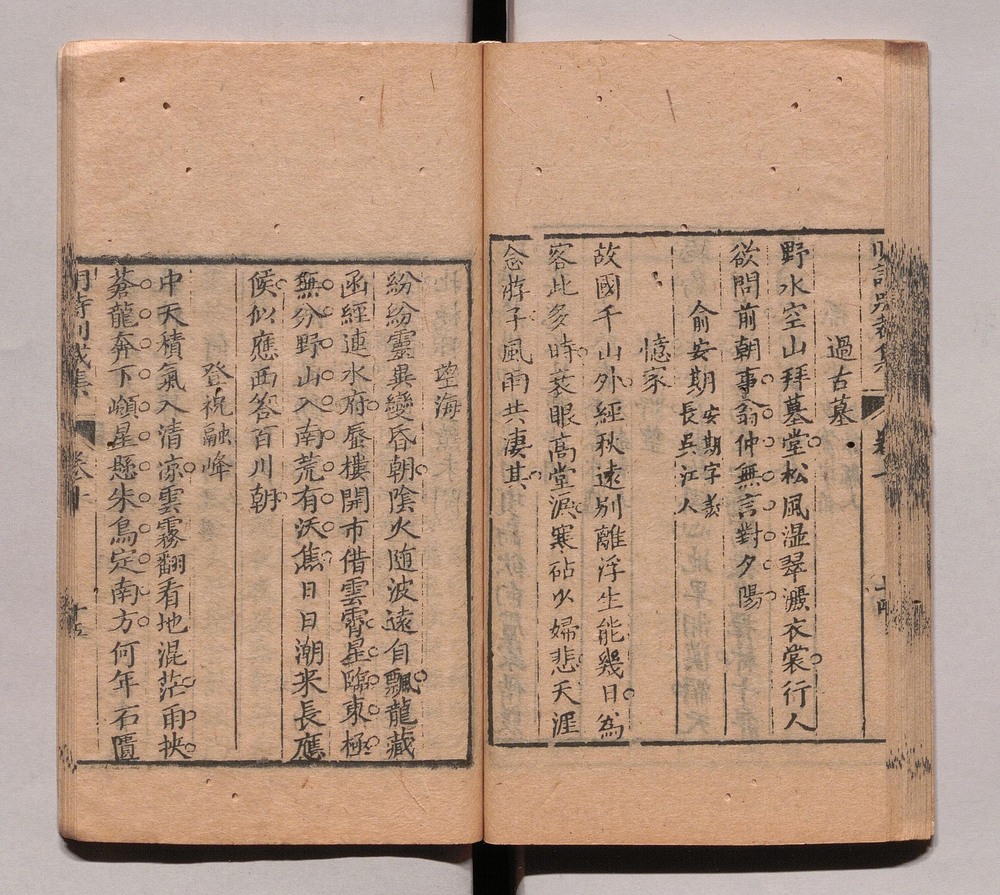 過古墓
野水空山拜墓堂松風湿翠濺衣裳行人
欲問前朝事翁仲無言對夕陽
俞安期
安期字羨
長吳江人
憶家
故國千山外經秋遠別離浮生能幾日為
客此多時衰眼高堂淚寒砧少婦悲天涯
念游子風雨共凄其
望海
紛紛靈異變昏朝陰火随波遠自飄龍藏
函經連水府蜃樓開市借雲霄星臨東極
無分野山入南荒有沃焦日日潮来長應
候似應西答百川朝
登祝融峰
中天積氣入清凉雲霧翻看地混茫雨挾
蒼龍奔下嶺星懸朱鳥定南方何年石匱
明詩別裁集
卷十